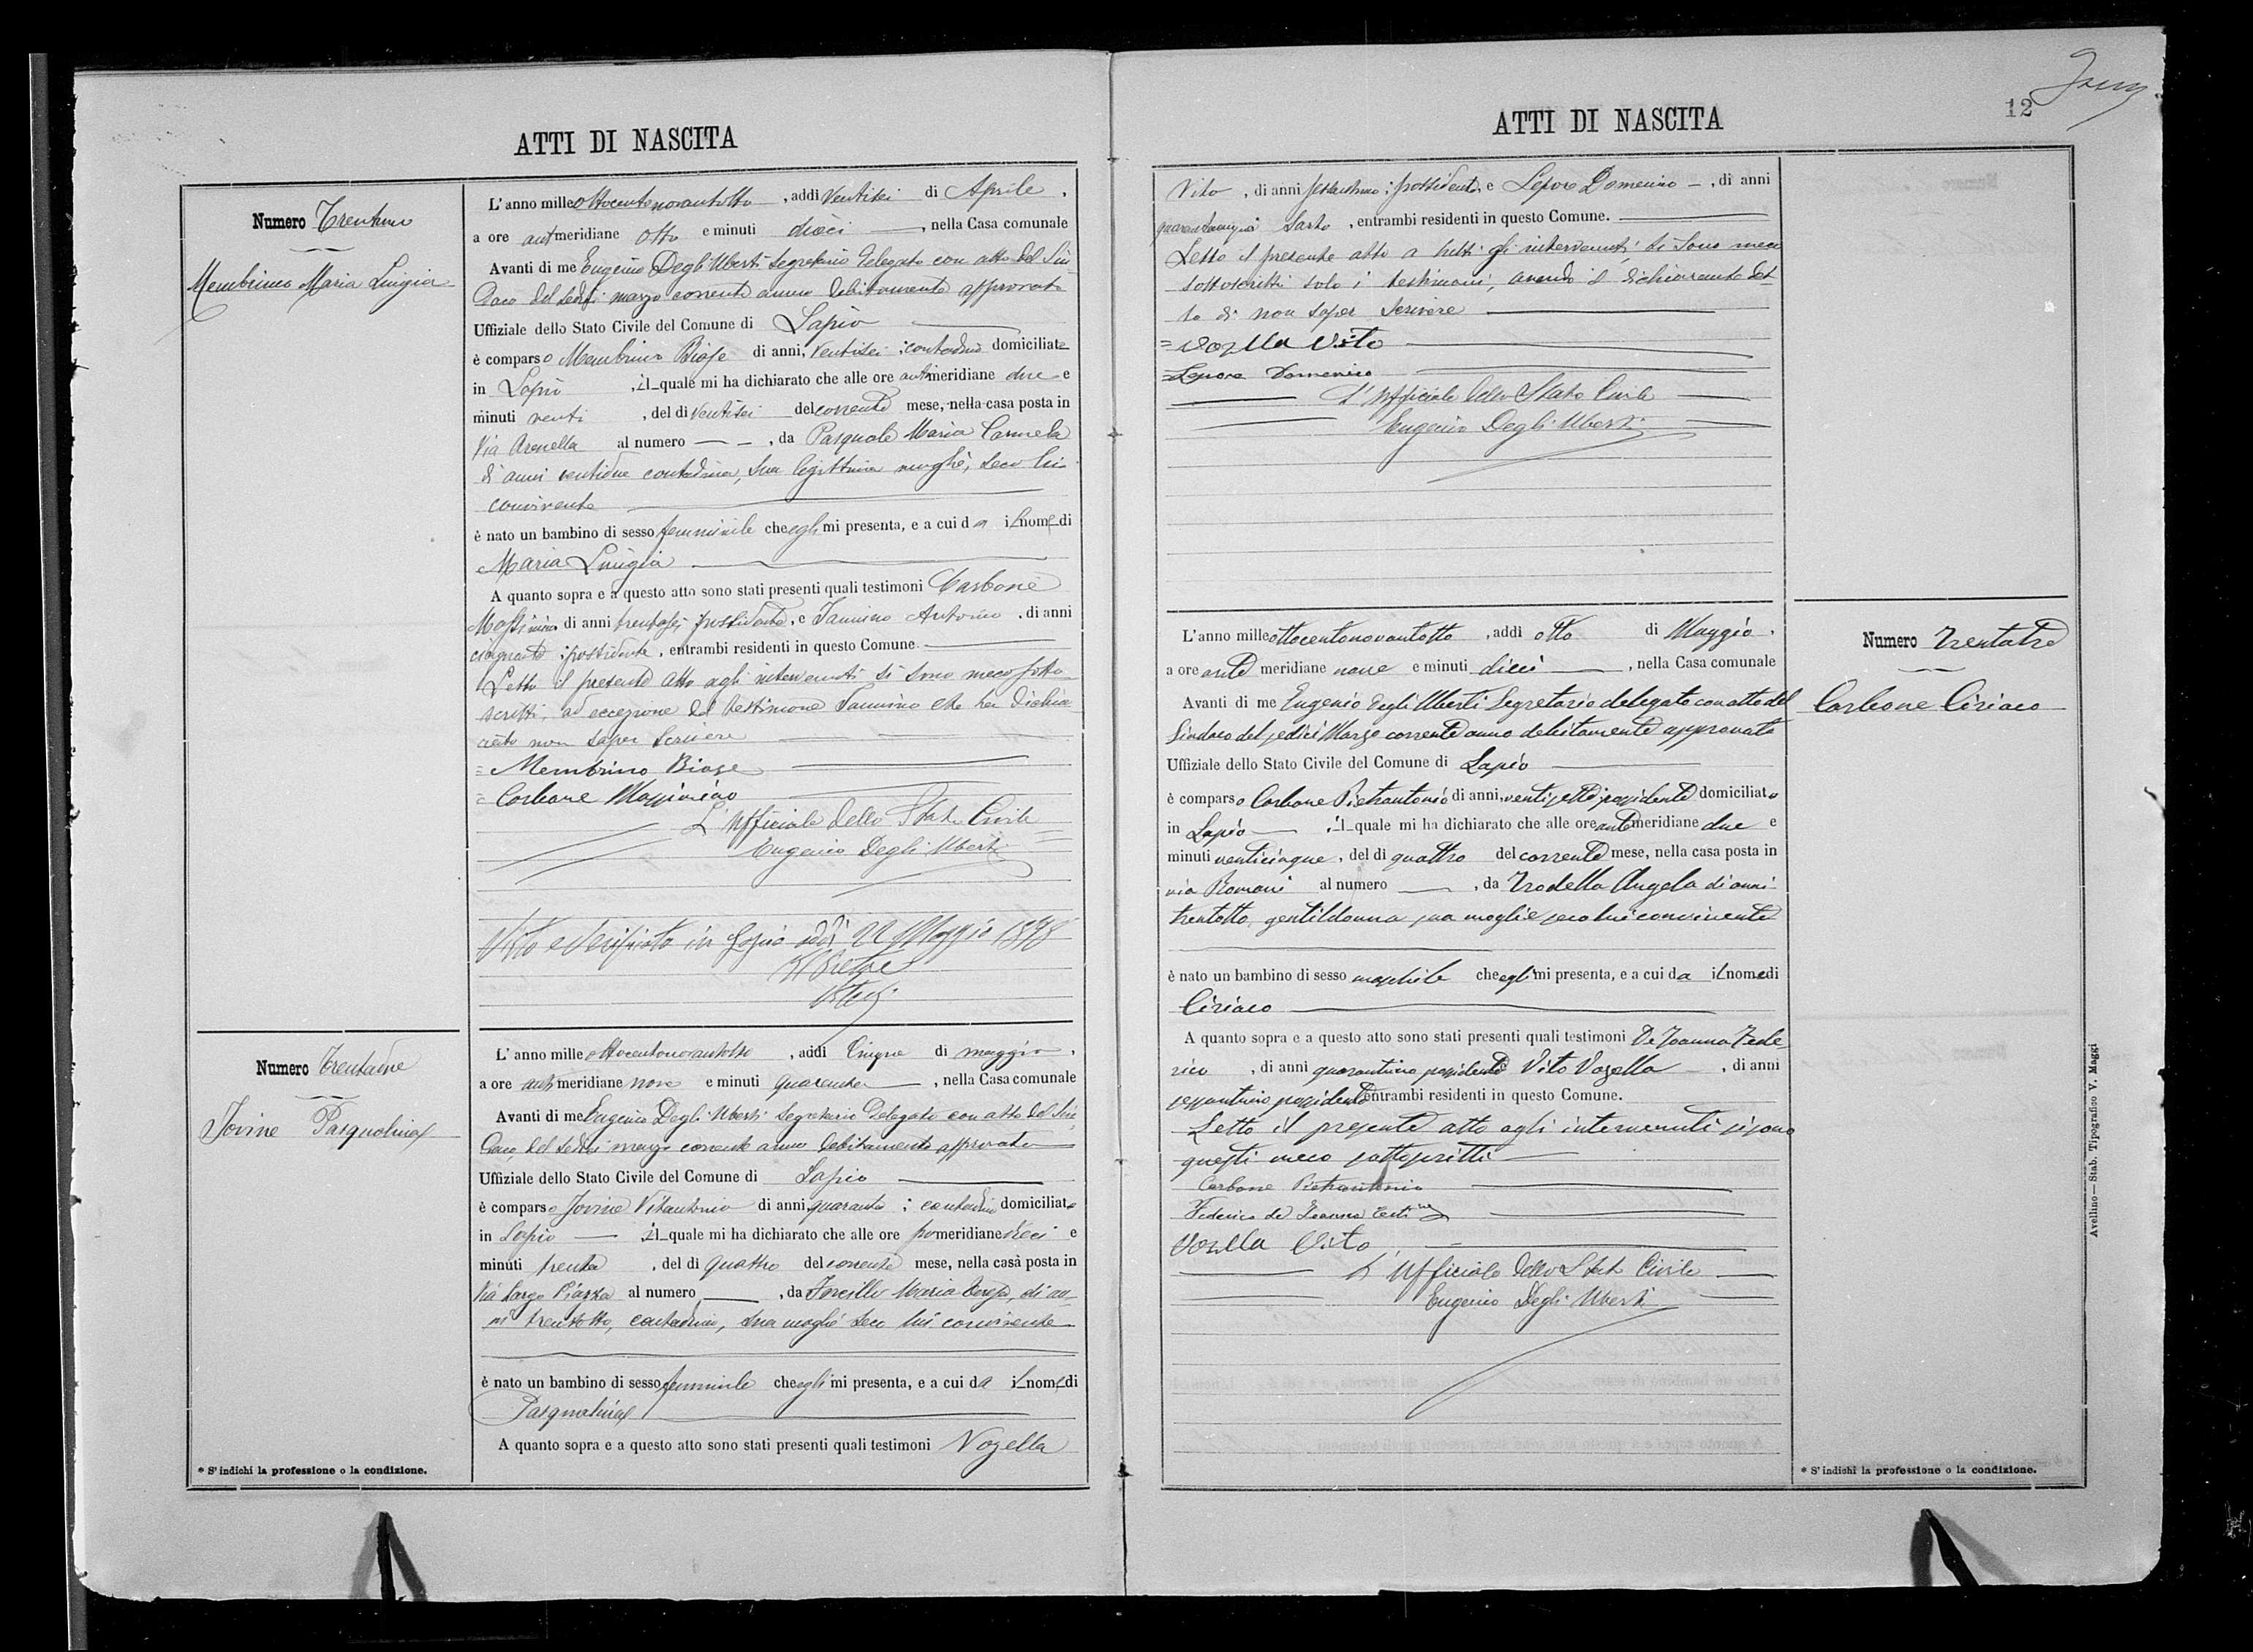 ATTI DI NASCITA
Numero Trentuno
Membrino Maria Luigia
L'anno mille ottocentonovantotto, addì Ventisei di Aprile,
a ore antimeridiane otto e minuti dieci, nella Casa comunale
Avanti di me Eugenio Degli Uberti Segretario Delegato con atto del Sin
daco del sedici marzo corrente anno debitamente approvato
Uffiziale dello Stato Civile del Comune di Lapio
è comparso Membrino Biase di anni, Ventisei; contadino domiciliato
in Lapio, il quale mi ha dichiarato che alle ore antimeridiane due e
minuti venti, del dì Ventisei del corrente mese, nella casa posta in
Via Arenella al numero — , da Pasquale Maria Carmela
di anni ventidue contadina, sua legittima moglie, seco lui
convivente
è nato un bambino di sesso femminile che egli mi presenta, e a cui dà il nome di
Maria Luigia
A quanto sopra e a questo atto sono stati presenti quali testimoni Carbone
Massimino di anni trentasei possidente, e Iannino Antonio, di anni
cinquanta; possidente, entrambi residenti in questo Comune.
Letto il presente atto agli intervenuti si sono meco sotto
scritti, ad eccezione del testimone Iannino che ha dichia
rato non saper scrivere
= Membrino Biase
= Carbone Massimino
L'Ufficiale dello Stato Civile
Eugenio Degli Uberti
Visto e verificato in Lapio addì 22 Maggio 1898
Il Pretore
Numero Trentadue
Iovine Pasqualina
L'anno mille ottocentonovantotto, addì Cinque di maggio,
a ore antimeridiane nove e minuti quaranta, nella Casa comunale
Avanti di me Eugenio Degli Uberti Segretario Delegato con atto del Sin
daco del sedici marzo corrente anno debitamente approvato
Uffiziale dello Stato Civile del Comune di Lapio
è comparso Iovine Vitantonio di anni quaranta; contadino domiciliato
in Lapio — il quale mi ha dichiarato che alle ore pomeridiane dieci e
minuti trenta, del dì quattro del corrente mese, nella casa posta in
Via Largo Piazza al numero —, da Forcillo Maria Teresa, di an
ni trentotto, contadina, sua moglie seco lui convivente
è nato un bambino di sesso femminile che egli mi presenta, e a cui dà il nome di
Pasqualina
A quanto sopra e a questo atto sono stati presenti quali testimoni Vozella
* S'indichi la professione o la condizione.
ATTI DI NASCITA
12
Vito, di anni sessantuno; possidente, e Lepore Domenico —, di anni
quarantacinque Sarto, entrambi residenti in questo Comune.
Letto il presente atto a tutti gli intervenuti, si sono meco
sottoscritti solo i testimoni, avendo il dichiarante det
to di non saper scrivere
= Vozella Vito
= Lepore Domenico
L'Ufficiale dello Stato Civile
Eugenio Degli Uberti
Numero Trentatre
Carbone Ciriaco
L'anno mille ottocentonovantotto, addì otto di Maggio,
a ore ante meridiane nove e minuti dieci, nella Casa comunale
Avanti di me Eugenio degli Uberti Segretario delegato con atto del
Sindaco del sedici Marzo corrente anno debitamente approvato
Uffiziale dello Stato Civile del Comune di Lapio
è comparso Carbone Pietrantonio di anni, ventisette possidente domiciliato
in Lapio — il quale mi ha dichiarato che alle ore ante meridiane due e
minuti venticinque, del dì quattro del corrente mese, nella casa posta in
via Romani al numero —, da Trodella Angela di anni
trentotto, gentildonna sua moglie seco lui convivente
è nato un bambino di sesso maschile che egli mi presenta, e a cui dà il nome di
Ciriaco
A quanto sopra e a questo atto sono stati presenti quali testimoni De Ioanna Fede
rico, di anni quarantuno possidente Vito Vozella —, di anni
sessantuno possidente entrambi residenti in questo Comune.
Letto il presente atto agli intervenuti si sono
questi meco sottoscritti
Carbone Pietrantonio
Federico de Ioanna testi
Vozella Vito
L'Ufficiale dello Stato Civile
Eugenio Degli Uberti
* S'indichi la professione o la condizione.
Avellino — Stab. Tipografico V. Maggi